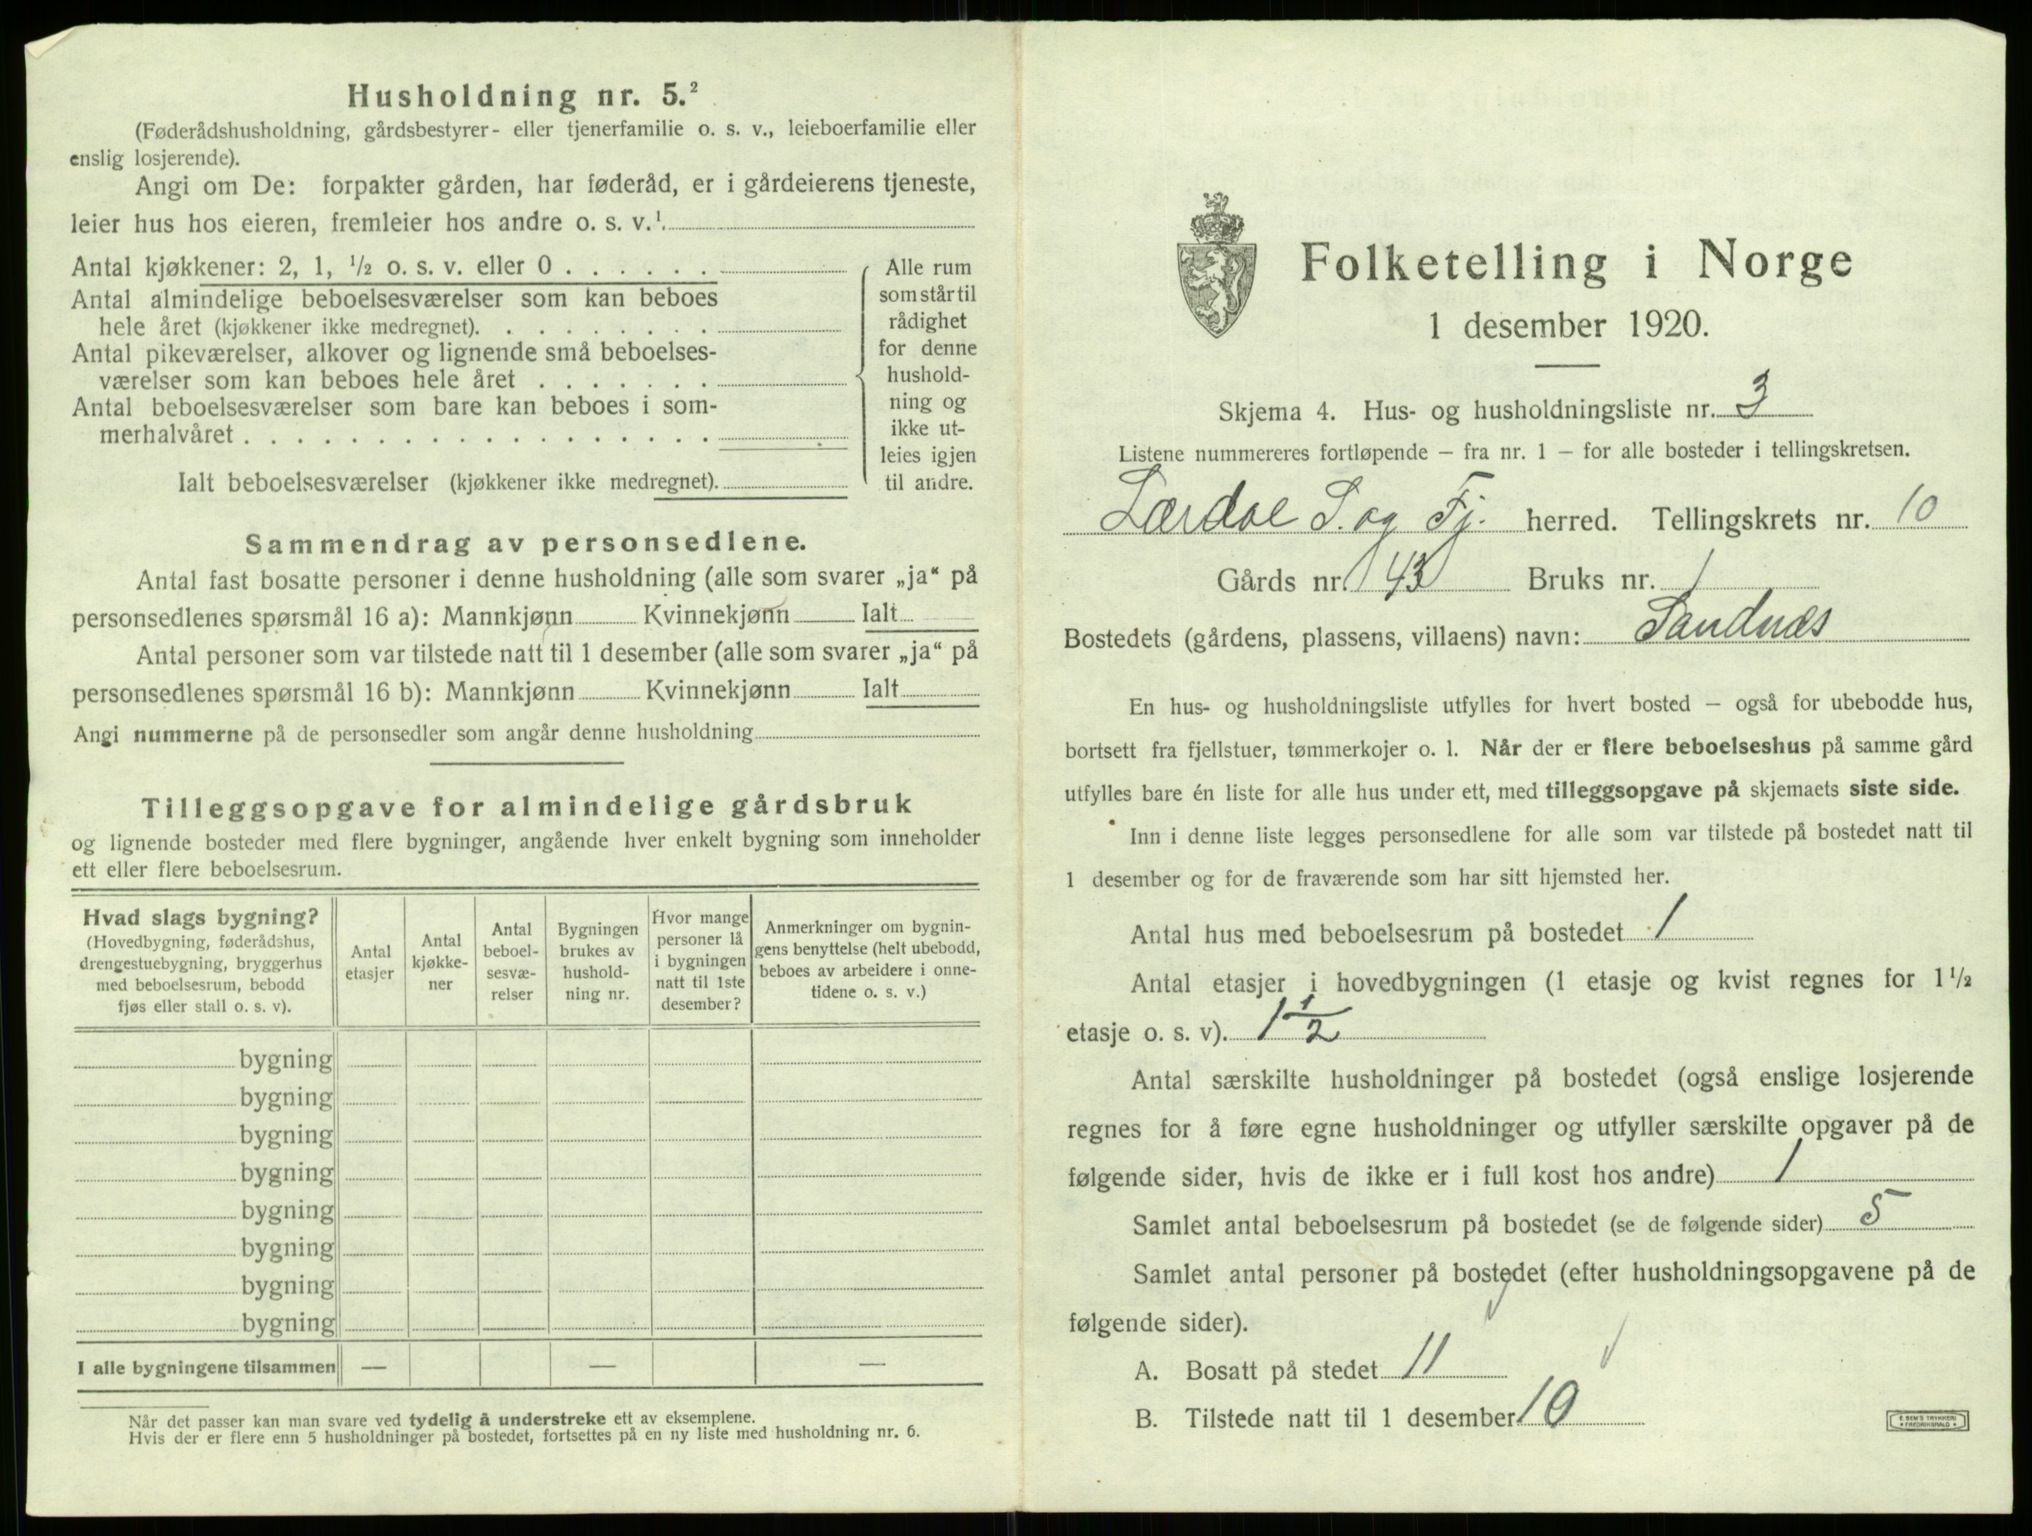 Husholdning nr. 5.²
(Føderådshusholdning, gårdsbestyrer- eller tjenerfamilie o. s. v., leieboerfamilie eller
enslig losjerende).
Angi om De: forpakter gården, har føderåd, er i gårdeierens tjeneste,
leier hus hos eieren, fremleier hos andre o. s. v.¹.
Antal kjøkkener: 2, 1, ½ o. s. v. eller 0 . . . . . .
Antal almindelige beboelsesværelser som kan beboes
hele året (kjøkkener ikke medregnet). . . . . . . . .
Antal pikeværelser, alkover og lignende små beboelses-
værelser som kan beboes hele året . . . . . . .
Antal beboelsesværelser som bare kan beboes i som-
merhalvåret . . . . . . . . . . . . . . . . . .
Ialt beboelsesværelser (kjøkkener ikke medregnet).
Alle rum
som står til
rådighet
for denne
hushold-
ning og
ikke ut-
leies igjen
til andre.
Sammendrag av personsedlene.
Antal fast bosatte personer i denne husholdning (alle som svarer „ja“ på
personsedlenes spørsmål 16 a): Mannkjønn Kvinnekjønn Ialt
Antal personer som var tilstede natt til 1 desember (alle som svarer „ja“ på
personsedlenes spørsmål 16 b): Mannkjønn Kvinnekjønn Ialt
Angi nummerne på de personsedler som angår denne husholdning
Tilleggsopgave for almindelige gårdsbruk
og lignende bosteder med flere bygninger, angående hver enkelt bygning som inneholder
ett eller flere beboelsesrum.
Hvad slags bygning?
(Hovedbygning, føderådshus,
drengestuebygning, bryggerhus
med beboelsesrum, bebodd
fjøs eller stall o. s. v).
Antal
etasjer
Antal
kjøkke-
ner
Antal
beboel-
sesvæ-
relser
Bygningen
brukes av
hushold-
ning nr.
Hvor mange
personer lå
i bygningen
natt til 1ste
desember?
Anmerkninger om bygnin-
gens benyttelse (helt ubebodd,
beboes av arbeidere i onne-
tidene o. s. v.)
bygning
bygning
bygning
bygning
bygning
bygning
bygning
bygning
I alle bygningene tilsammen — — —
Når det passer kan man svare ved tydelig å understreke ett av eksemplene.
Hvis der er flere enn 5 husholdninger på bostedet, fortsettes på en ny liste med husholdning nr. 6.
Folketelling i Norge
1 desember 1920.
Skjema 4. Hus- og husholdningsliste nr. 3
Listene nummereres fortløpende – fra nr. 1 – for alle bosteder i tellingskretsen.
Lærdal S. og Fj. herred. Tellingskrets nr. 10
Gårds nr. 43 Bruks nr. 1
Bostedets (gårdens, plassens, villaens) navn: Sandnæs
En hus- og husholdningsliste utfylles for hvert bosted – også for ubebodde hus,
bortsett fra fjellstuer, tømmerkojer o. l. Når der er flere beboelseshus på samme gård
utfylles bare én liste for alle hus under ett, med tilleggsopgave på skjemaets siste side.
Inn i denne liste legges personsedlene for alle som var tilstede på bostedet natt til
1 desember og for de fraværende som har sitt hjemsted her.
Antal hus med beboelsesrum på bostedet 1
Antal etasjer i hovedbygningen (1 etasje og kvist regnes for 1½
etasje o. s. v). 1 ½
Antal særskilte husholdninger på bostedet (også enslige losjerende
regnes for å føre egne husholdninger og utfyller særskilte opgaver på de
følgende sider, hvis de ikke er i full kost hos andre) 1
Samlet antal beboelsesrum på bostedet (se de følgende sider) 5
Samlet antal personer på bostedet (efter husholdningsopgavene på de
følgende sider).
A. Bosatt på stedet 11
B. Tilstede natt til 1 desember 10
E. SEM'S TRYKKERI
FREDRIKSHALD